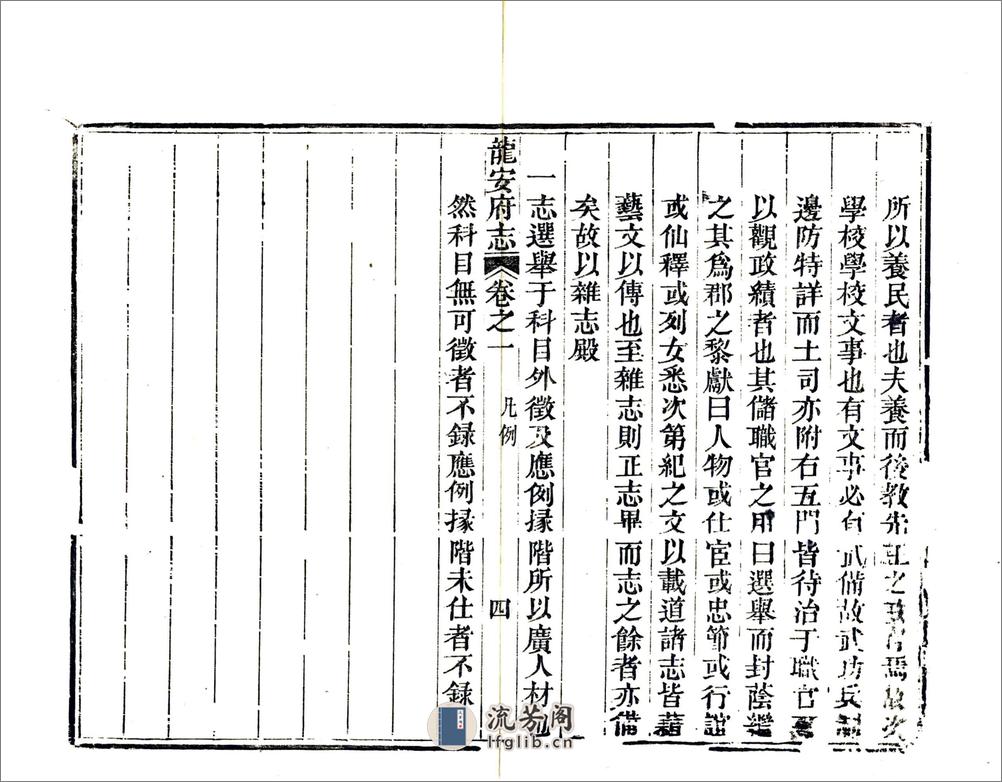 所以養民者也夫養而後教先王之政首焉故次
學校學校文事也有文事必有武備故武功兵
邊防特詳而土司亦附右五門皆待治于職官
以觀政績者也其儲職官之用曰選舉而封蔭繼
之其爲郡之黎獻曰人物或仕宦或忠節或行誼
或仙釋或列女悉次第紀之文以載道諸志皆藉
藝文以傳也至雜志則正志畢而志之餘者亦備
矣故以雜志殿
一志選舉于科目外徵及應例掾階所以廣人材也
龍安府志 卷之一 凡例 四
然科目無可徵者不録應例掾階未仕者不録
流芳阁
lfglib.cn